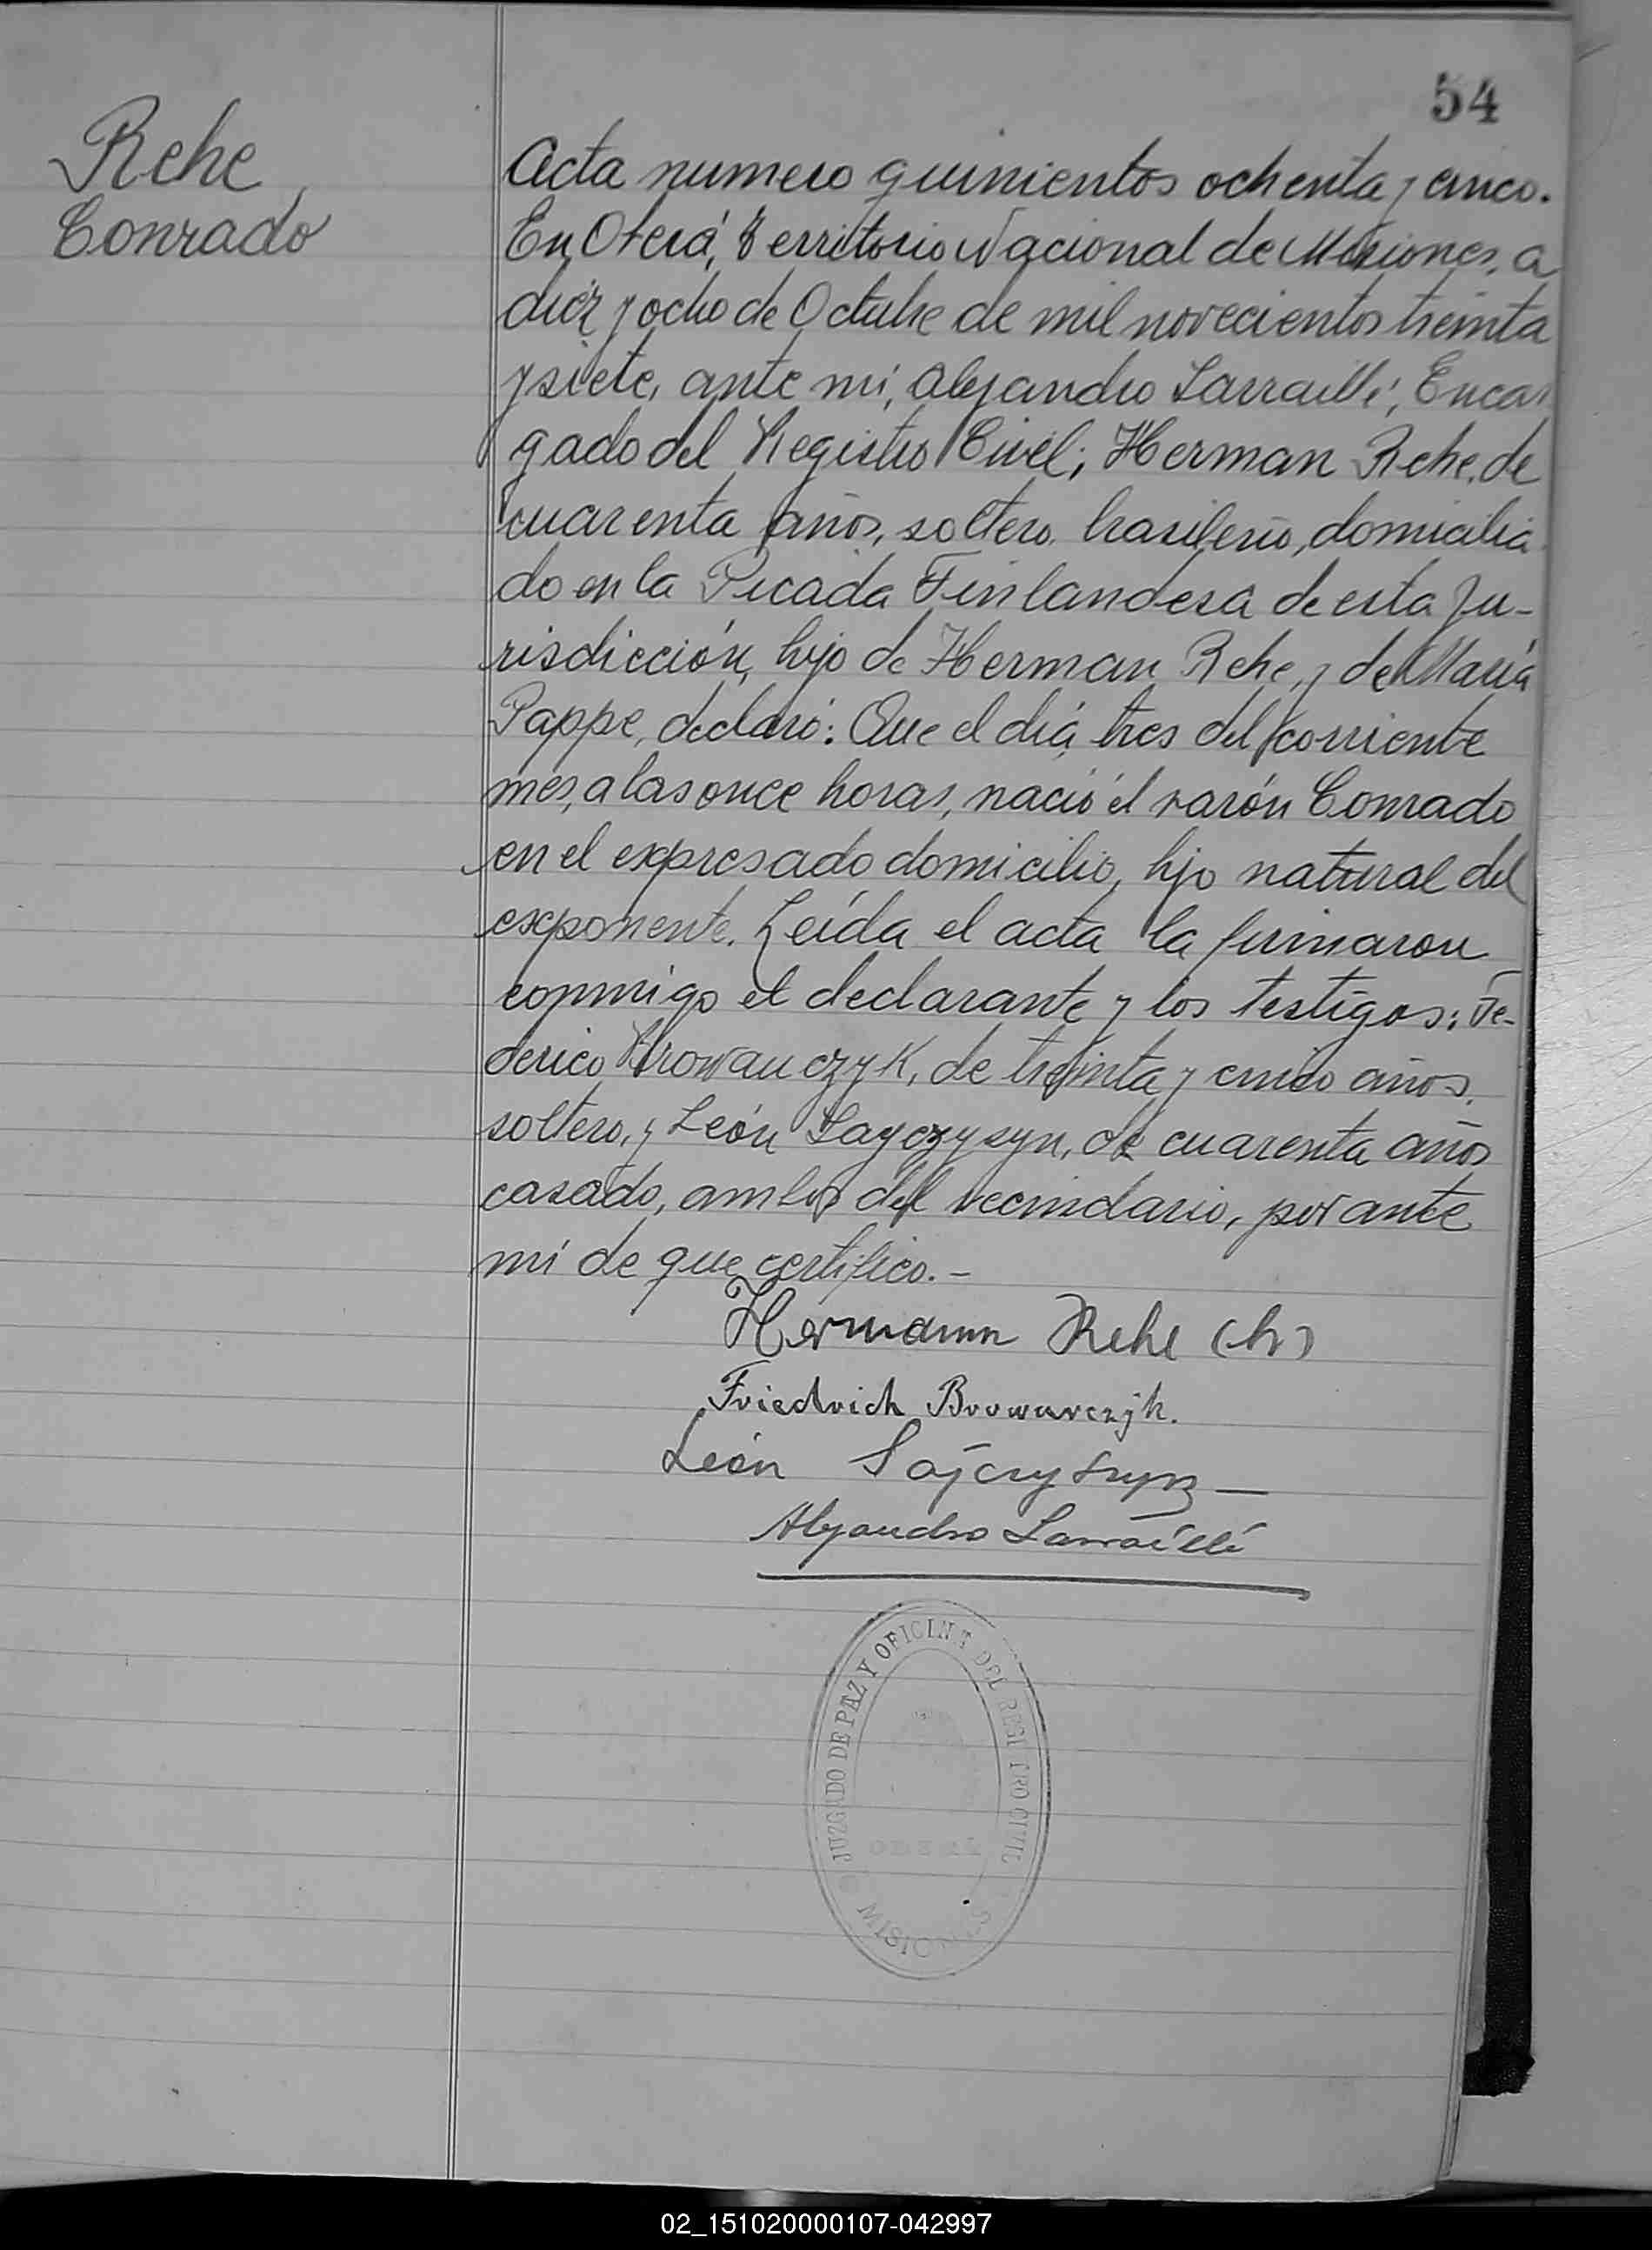 54
Rehe
Conrado
Acta numero quinientos ochenta y cinco.
En Oberá, Territorio Nacional de Misiones, a
diez y ocho de Octubre de mil novecientos treinta
y siete, ante mi, Alejandro Larraillé, Encar
gado del Registro Civil; Herman Rehe, de
cuarenta años, soltero, brasileño, domicilia
do en la Picada Finlandesa de esta Ju-
risdicción, hijo de Herman Rehe, y de María
Pappe, declaró: Que el día tres del corriente
mes, a las once horas, nació el varón Conrado
en el expresado domicilio, hijo natural del
exponente. Leída el acta la firmaron
conmigo el declarante y los testigos: Fe-
derico Browarczyk, de treinta y cinco años,
soltero, y León Sayczysyn, de cuarenta años
casado, ambos del vecindario, por ante
mi de que certifico.-
Hermann Rehe (h)
Friedrich Browarczyk.
León
Alejandro Larraillé
JUZGADO DE PAZ Y OFICINA DEL REGISTRO CIVIL
OBERÁ
MISIONES
02_151020000107-042997